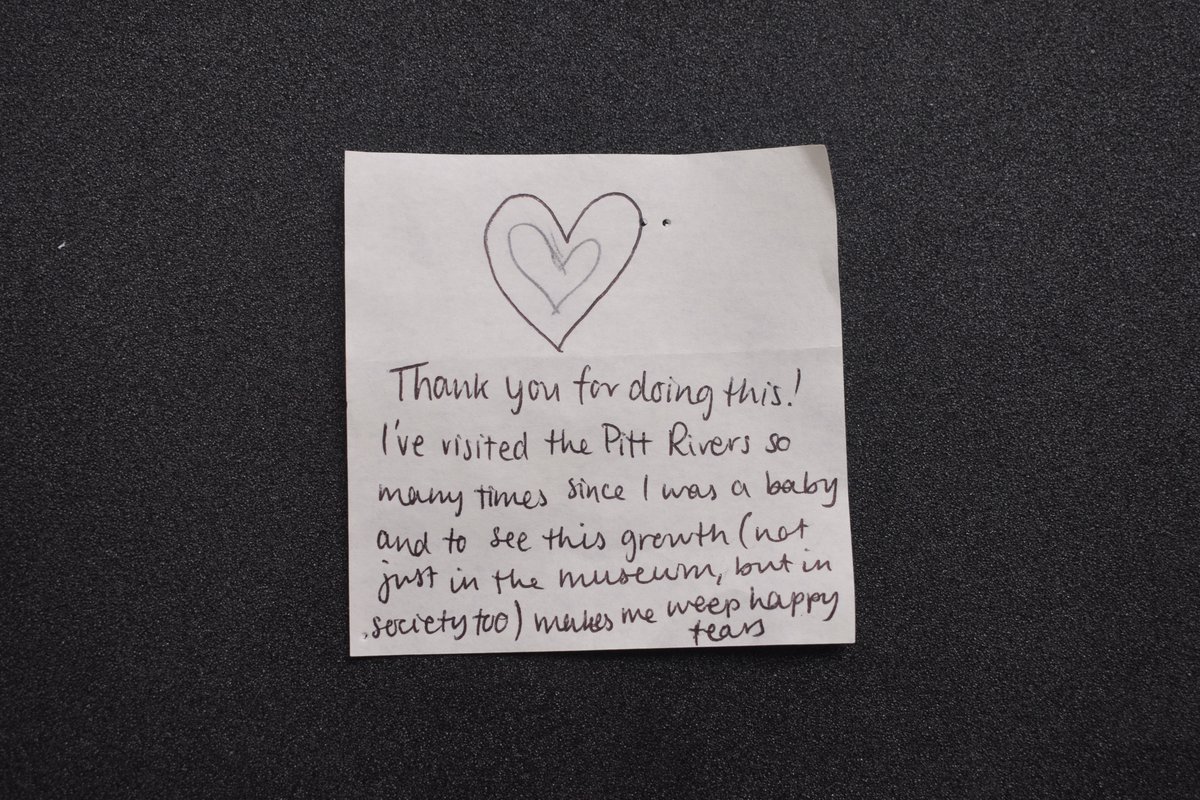 Thank you for doing this!
I've visited the Pitt Rivers so
many times since I was a baby
and to see this growth (not
just in the museum, but in
society too) makes me weep happy
tears